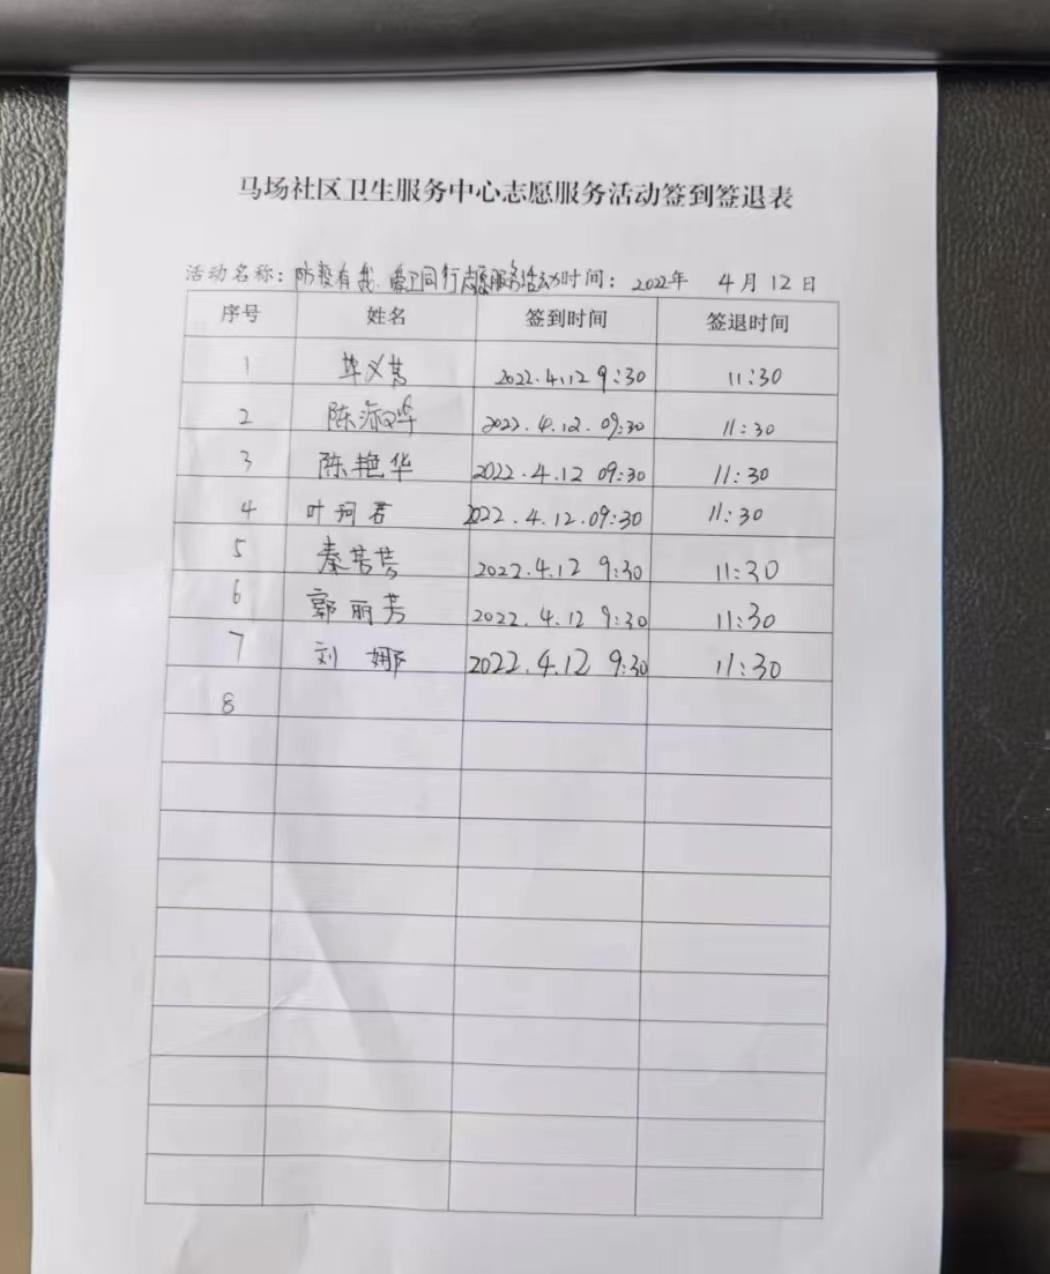 马场社区卫生服务中心志愿服务活动签到签退表
活动名称：防疫有我、爱卫同行志愿服务活动时间：2022年 4月12日
序号 姓名 签到时间 签退时间
1 毕义 2022.4.12 9:30 11:30
2 陈淑华 2022.4.12.09:30 11:30
3 陈艳华 2022.4.12 09:30 11:30
4 叶珂君 2022.4.12.09:30 11:30
5 秦芳芳 2022.4.12 9:30 11:30
6 郭丽芳 2022.4.12 9:30 11:30
7 刘娜 2022.4.12 9:30 11:30
8